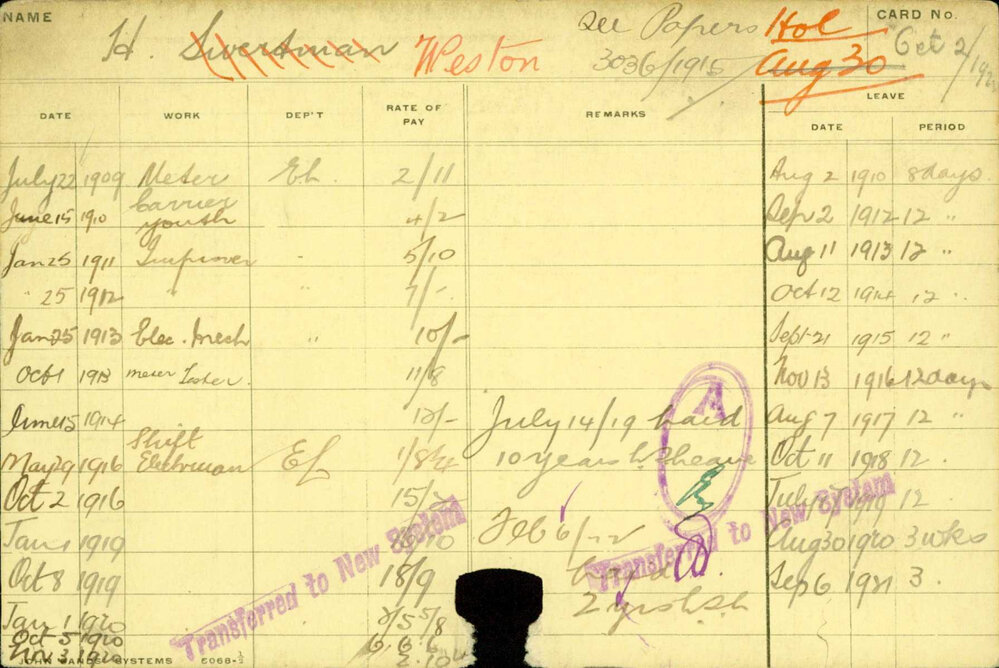 NAME
H. Swertman Weston
See Papers
3036/1915
Hol
Aug 30
CARD No.
Oct 2/192
DATE WORK DEP'T RATE OF PAY REMARKS
LEAVE
DATE PERIOD
July 22 1909 Meter El. 2/11
June 15 1910 Carrier youth 4/2
Jan 25 1911 Improver " 5/10
" 25 1912 " " 7/-
Jan 25 1913 Elec. Mech " 10/-
Oct 1 1913 meter Tester. 11/8
June 15 1914 12/-
May 29 1916 Shift Electrman El 1/8¾
Oct 2 1916 15/
Jan 1 1919 /10
Oct 8 1919 18/9
Jan 1 1920
Oct 5 1920 6.6.6
Nov 3 1920
July 14/19 paid
10 years
A
Feb 6/22
2
Aug 2 1910 8 days.
Sep 2 1912 12 "
Aug 11 1913 12 "
Oct 12 1914 12 "
Sept 21 1915 12 "
Nov 13 1916 12 days
Aug 7 1917 12 "
Oct 11 1918 12.
July 1919 12
Aug 30 1920 3 wks
Sep 6 1921 3.
Transferred to New System
Transferred to New System
JOHN SANDS SYSTEMS 5068-½